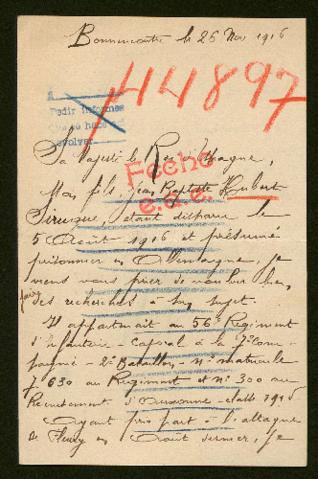 Bonnencontre le 26 Nov 1916
44897
A
Pedir informes
devolver.
Sa Majesté le Roi d'Espagne,
Fecho
e.o.e.
Mon fils, Jean Baptiste Hubert
étant disparu le
5 Août 1916 et présumé
prisonnier en Allemagne, je
viens vous prier de vouloir bien
faire
des recherches à son sujet.
Il appartenait au 56e Régiment
d'Infanterie - caporal à la 7e Com-
pagnie - 2e Bataillon - n° matricule
7630 au Régiment et n° 300 au
Recrutement d'Auxonne - classe 1915
Ayant pris part à l'attaque
de Fleury en Août dernier, je